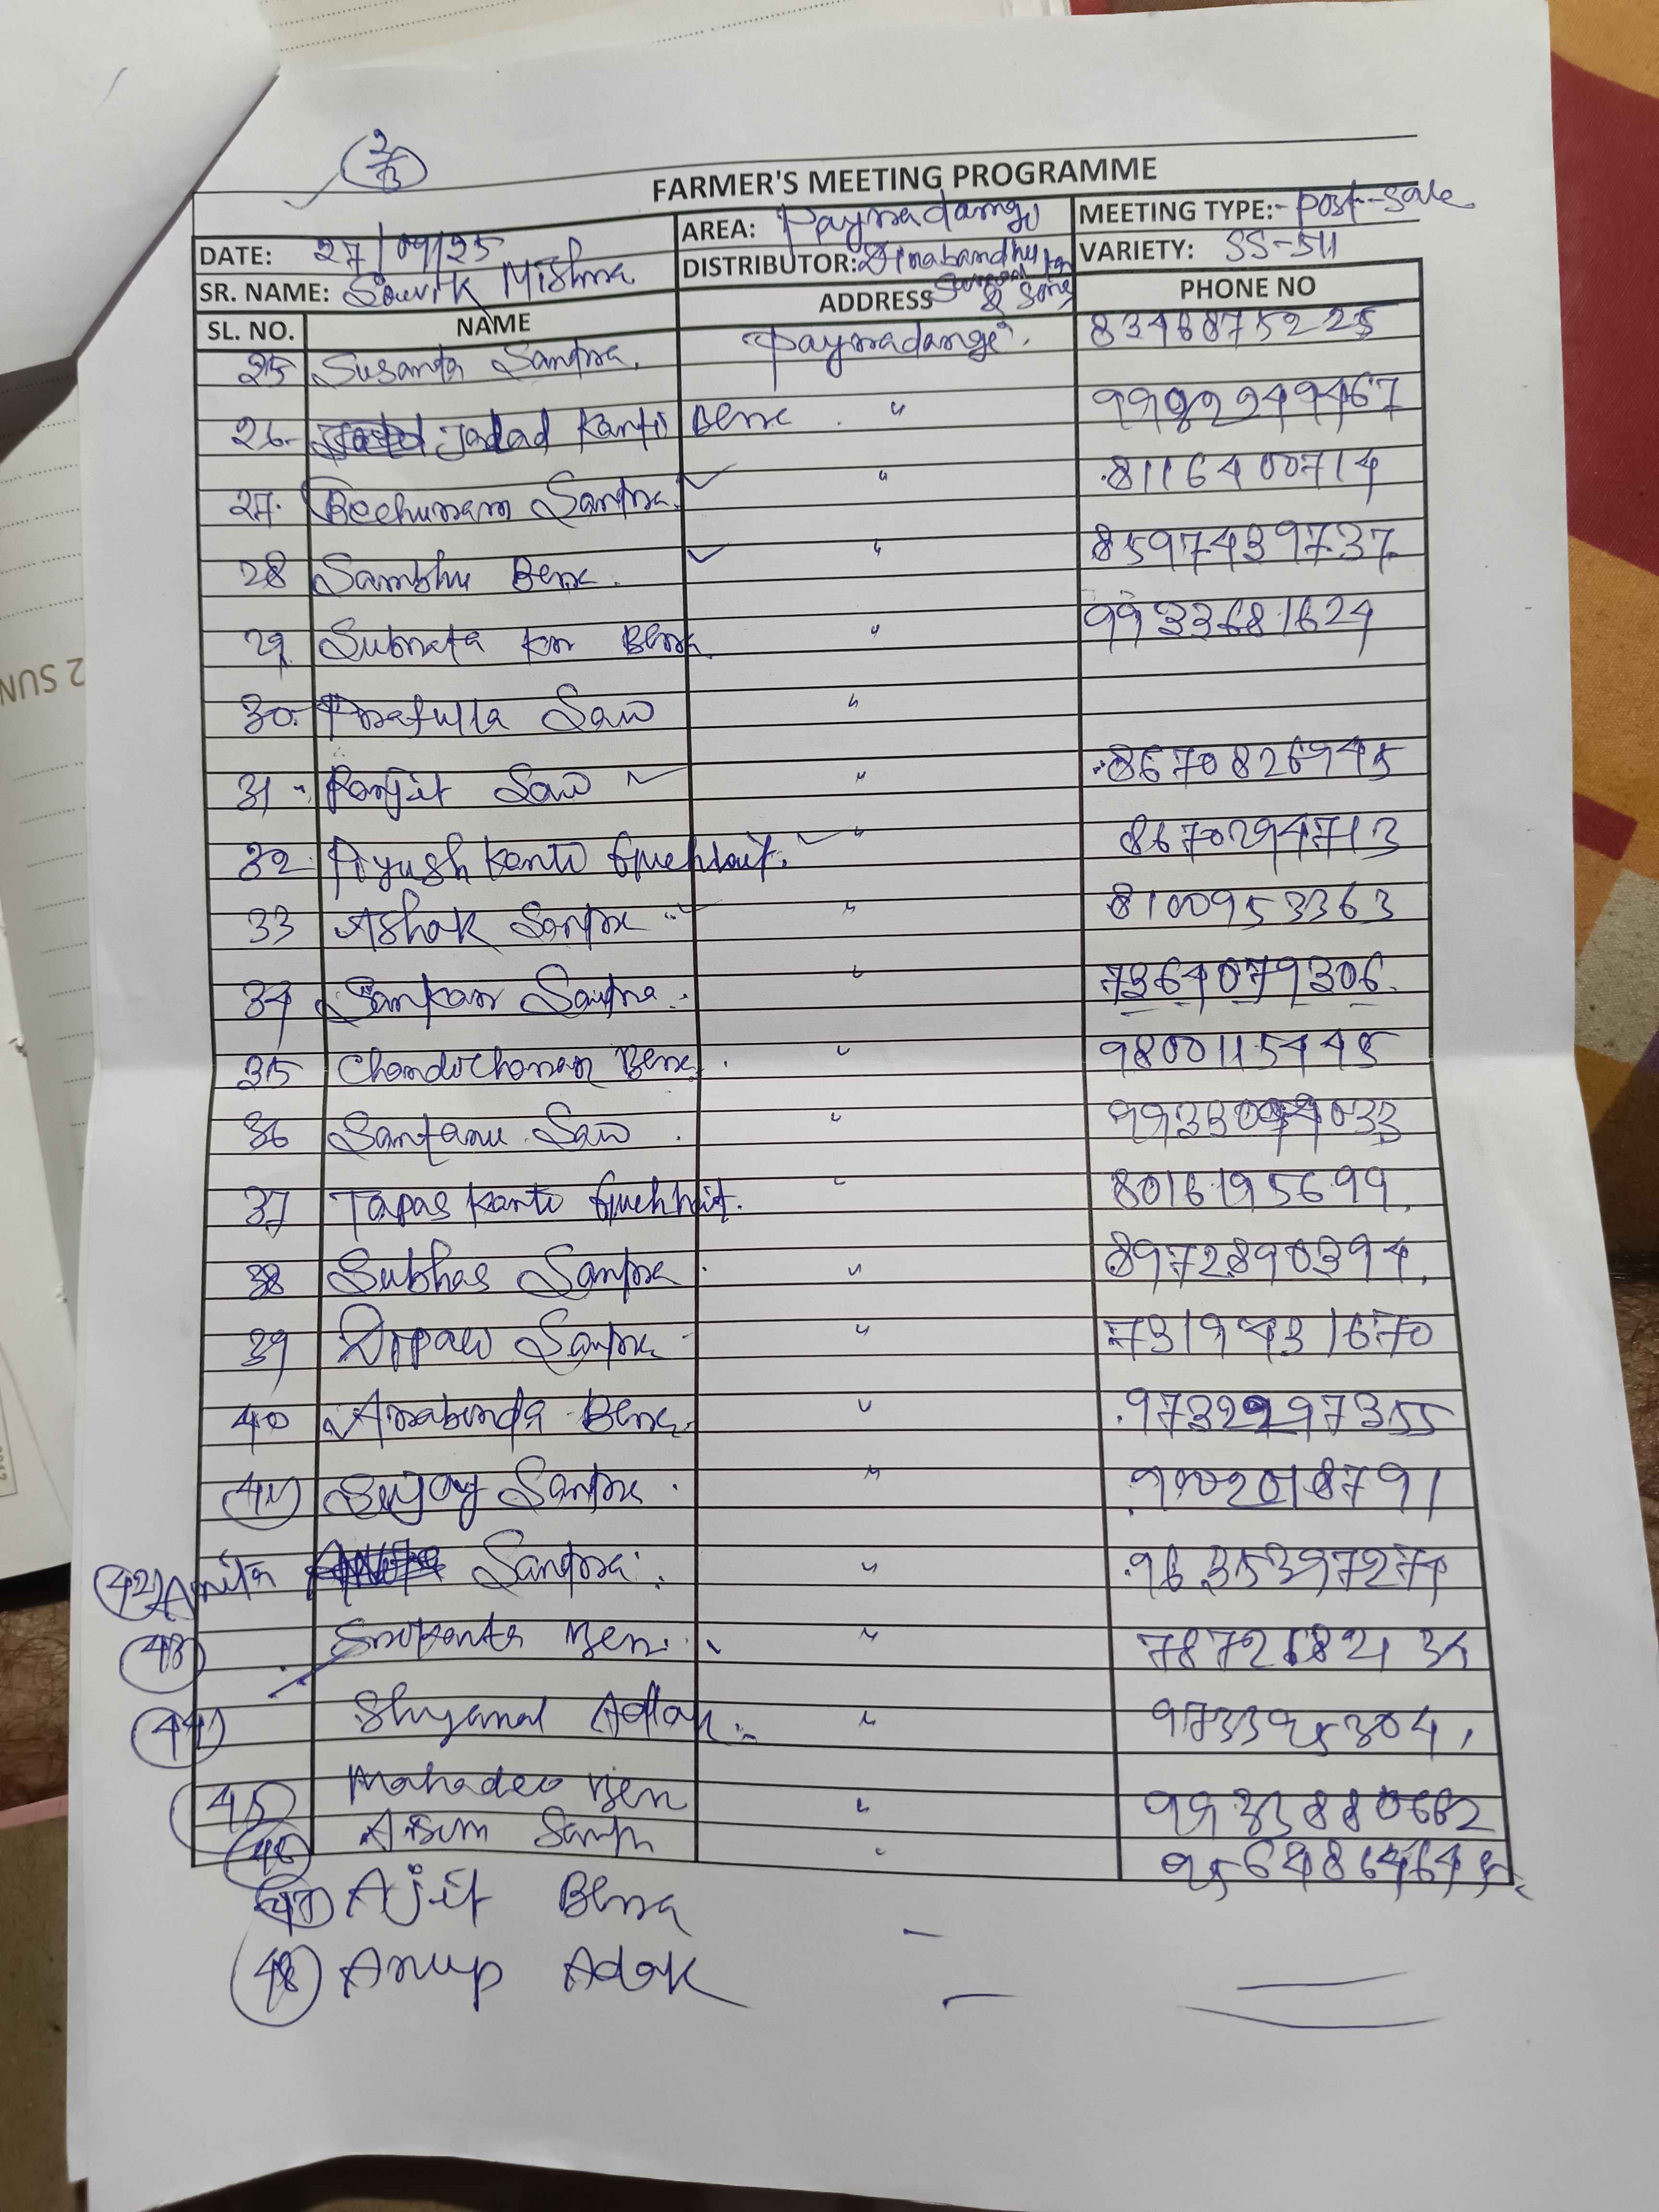 2/3
FARMER'S MEETING PROGRAMME
DATE: 27/09/25 AREA: Payradangi MEETING TYPE:- Post-Sale
SR. NAME: Souvik Mishra DISTRIBUTOR: Dinabandhu & Sons VARIETY: SS-511
SL. NO. NAME ADDRESS PHONE NO
25 Susanta Santra. Payradangi. 8346875225
26. Jalad Kanti Bera. " 9982249467
27. Bechuram Santra. " 8116400714
28 Sambhu Bera. " 8597439737
29. Subrata Kr Bera " 9933681624
30. Prafulla Sau "
31. Ranjit Sau " 8670826945
32. Piyush Kanti Guchhait. " 8670294713
33 Ashok Santra " 8100953363
34 Sankar Santra. " 7364079306.
35 Chandicharan Bera. " 9800115445
36 Santanu Sau. " 9933094033
37 Tapas Kanti Guchhait. " 8016195699.
38 Subhas Santra. " 8972890394.
39 Dipali Santra " 7319431670
40 Arabinda Bera. " 9732297355
41 Sujoy Santra. " 9002018791
42) Amita Santra. " 9635397274
43 Srikanta Bera. "
44) Shyamal Adak. "
45) Mahadeo Bera " 9933880662
46 Asim Santra " 9564864645.
47) Ajit Bera —
48) Anup Adak —
2 SUN